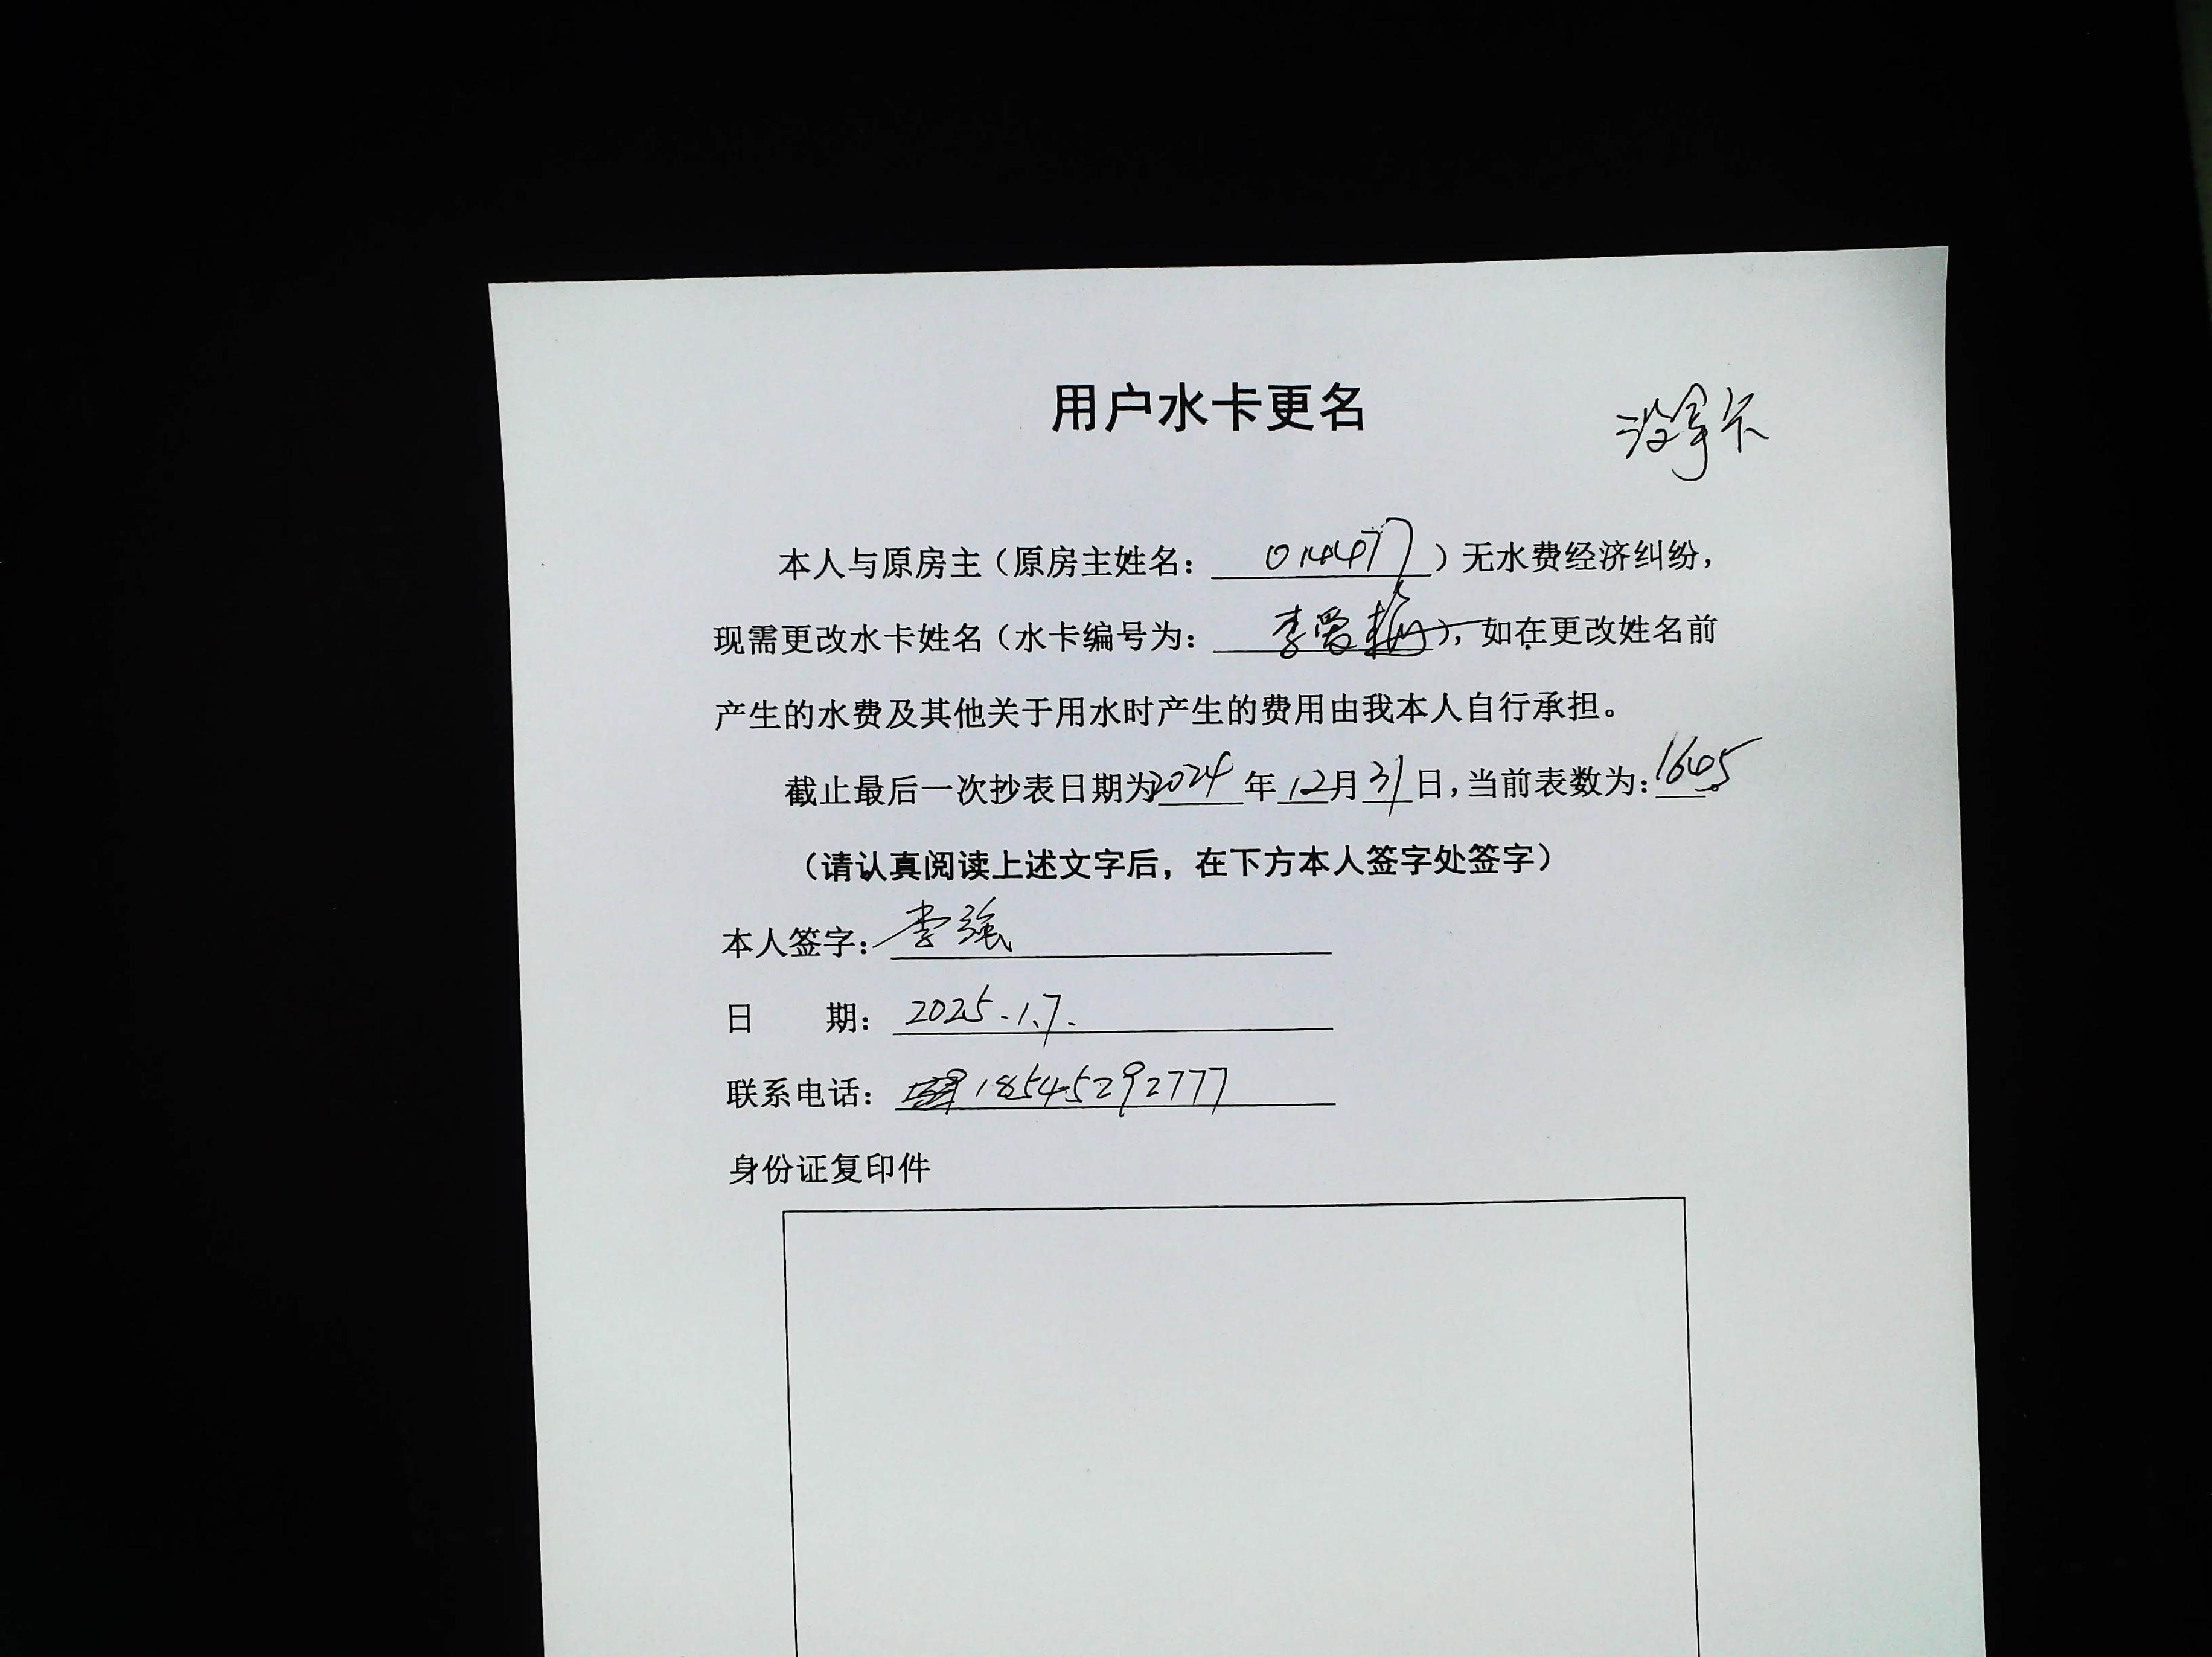 用户水卡更名
没拿卡
本人与原房主（原房主姓名：014477）无水费经济纠纷，
现需更改水卡姓名（水卡编号为：李爱梅），如在更改姓名前
产生的水费及其他关于用水时产生的费用由我本人自行承担。
截止最后一次抄表日期为2024年12月31日，当前表数为：1645。
（请认真阅读上述文字后，在下方本人签字处签字）
本人签字：李强
日期：2025.1.7.
联系电话：18545292777
身份证复印件